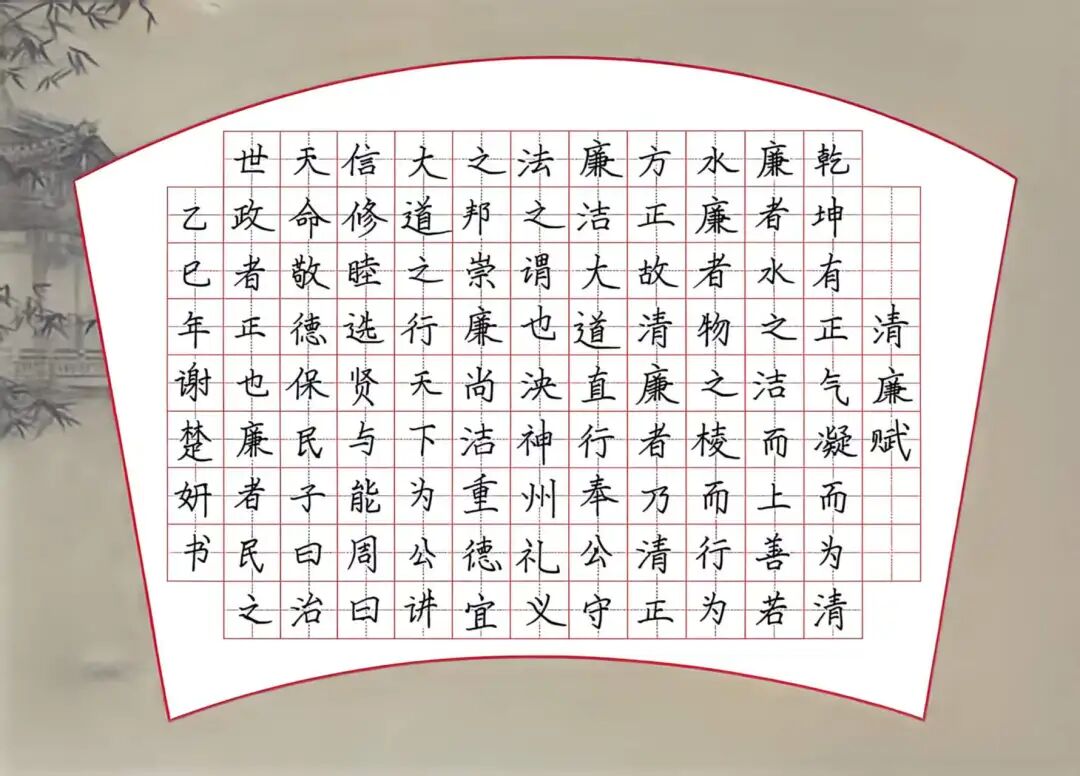 清廉赋
乾坤有正气凝而为清
廉者水之洁而上善若
水廉者物之棱而行为
方正故清廉者乃清正
廉洁大道直行奉公守
法之谓也泱神州礼义
之邦崇廉尚洁重德宜
大道之行天下为公讲
信修睦选贤与能周曰
天命敬德保民子曰治
世政者正也廉者民之
乙巳年谢楚妍书